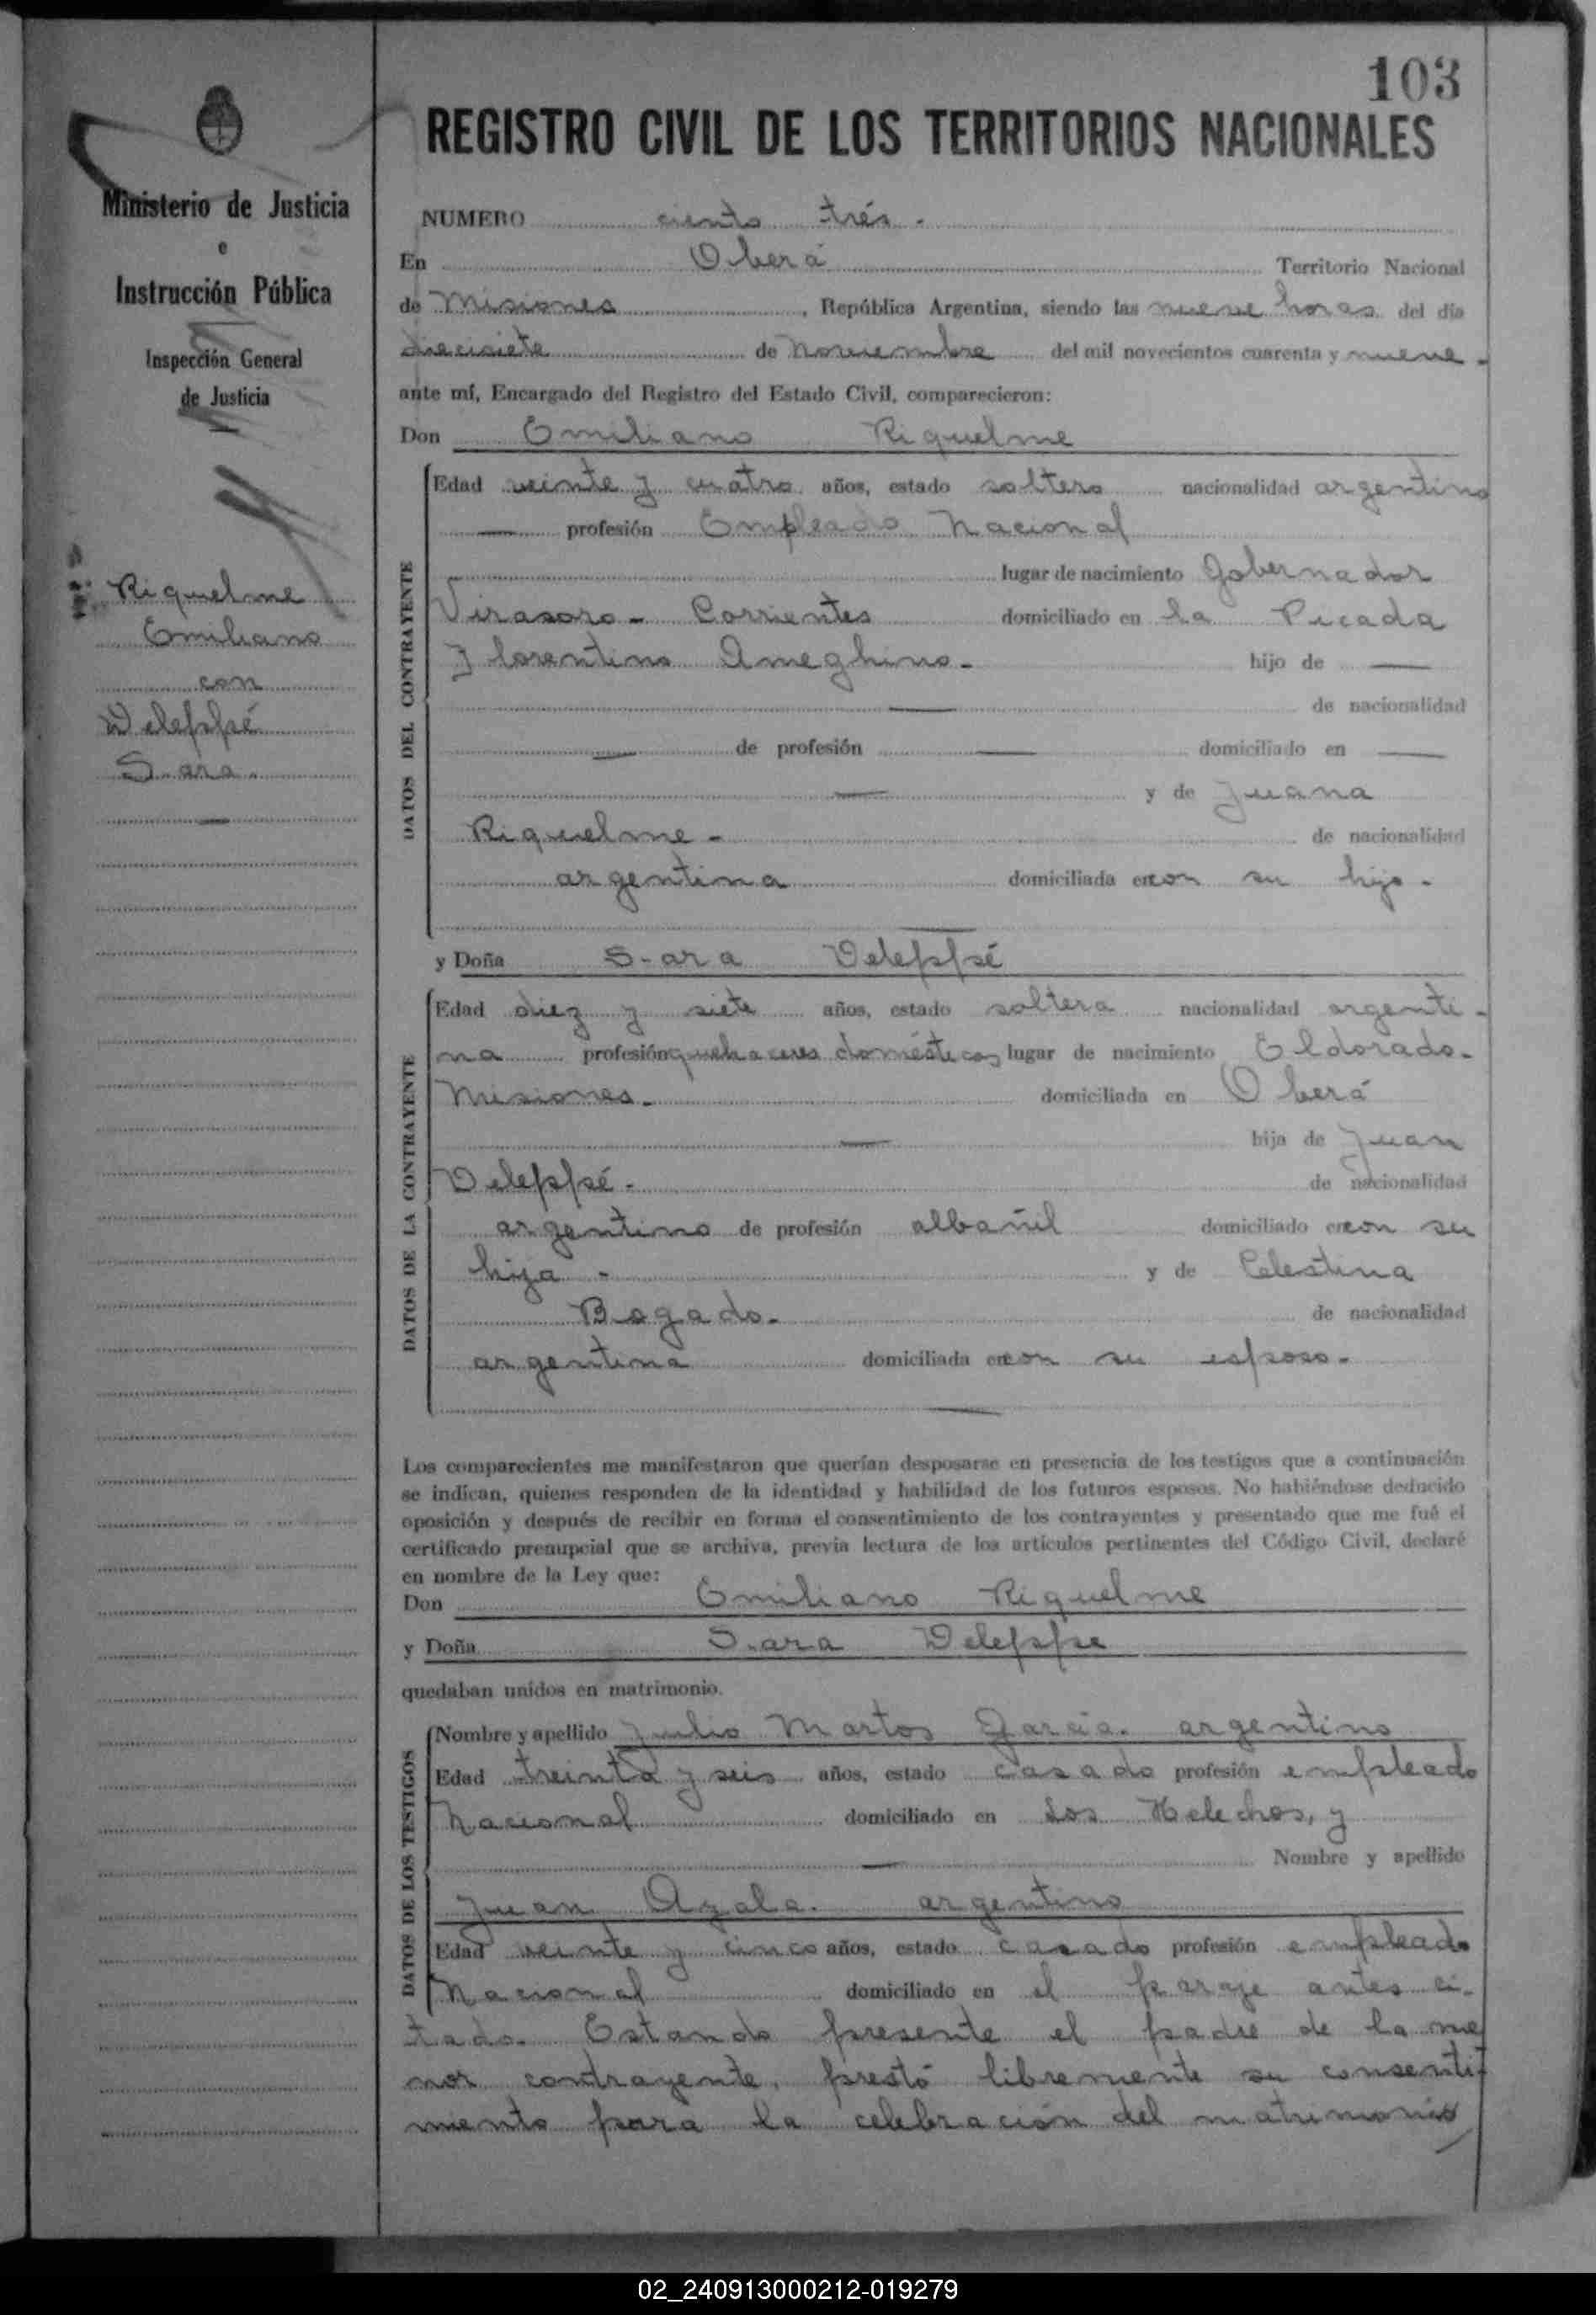 103
REGISTRO CIVIL DE LOS TERRITORIOS NACIONALES
Ministerio de Justicia
e
Instrucción Pública
Inspección General
de Justicia
Riquelme
Emiliano
con
Deleppé
Sara.
NUMERO ciento trés.
En Oberá Territorio Nacional
de Misiones, República Argentina, siendo las nueve horas del día
diecisiete de Noviembre del mil novecientos cuarenta y nueve.
ante mí, Encargado del Registro del Estado Civil, comparecieron:
Don Emiliano Riquelme
DATOS DEL CONTRAYENTE
Edad veinte y cuatro años, estado soltero nacionalidad argentino
— profesión Empleado Nacional
lugar de nacimiento Gobernador
Virasoro - Corrientes domiciliado en la Picada
Florentino Ameghino - hijo de —
— de nacionalidad
— de profesión — domiciliado en —
— y de Juana
Riquelme - de nacionalidad
argentina domiciliada en con su hijo.
y Doña Sara Deleppé
DATOS DE LA CONTRAYENTE
Edad diez y siete años, estado soltera nacionalidad argenti-
na profesión quehaceres domésticos lugar de nacimiento Eldorado.
Misiones. domiciliada en Oberá
— hija de Juan
Deleppé. de nacionalidad
argentino de profesión albañil domiciliado en con su
hija - y de Celestina
Bogado. de nacionalidad
argentina domiciliada en con su esposo.
Los comparecientes me manifestaron que querían desposarse en presencia de los testigos que a continuación
se indican, quienes responden de la identidad y habilidad de los futuros esposos. No habiéndose deducido
oposición y después de recibir en forma el consentimiento de los contrayentes y presentado que me fué el
certificado prenupcial que se archiva, previa lectura de los artículos pertinentes del Código Civil, declaré
en nombre de la Ley que:
Don Emiliano Riquelme
y Doña Sara Deleppe
quedaban unidos en matrimonio.
DATOS DE LOS TESTIGOS
Nombre y apellido Julio Martos Garcia. argentino
Edad treinta y seis años, estado casado profesión empleado
Nacional domiciliado en Los Helechos, y
— Nombre y apellido
Juan Ayala. argentino
Edad veinte y cinco años, estado casado profesión empleado
Nacional domiciliado en el paraje antes ci-
tado. Estando presente el padre de la me
nor contrayente, prestó libremente su consenti-
miento para la celebración del matrimonio
02_240913000212-019279